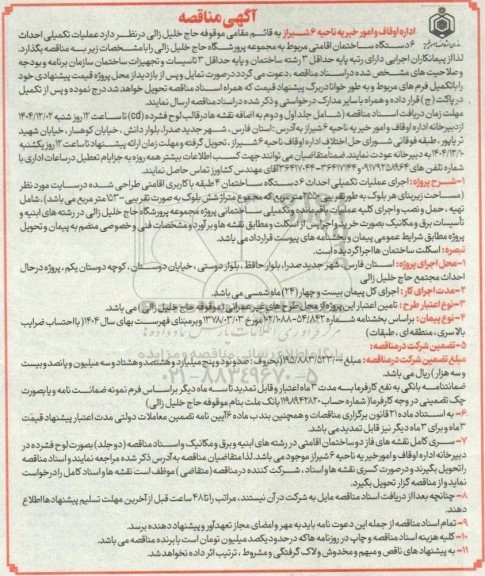 آگهی مناقصه
اداره اوقاف و امور خیریه ناحیه ۶ شیراز به قائم مقامی موقوفه حاج خلیل زالی در نظر دارد عملیات تکمیلی احداث
۶ دستگاه ساختمان اقامتی مربوط به مجموعه پرورشگاه حاج خلیل زالی را با مشخصات زیر به مناقصه بگذارد.
لذا از پیمانکاران اجرایی دارای رتبه پایه حداقل ۳ رشته ساختمان و پایه حداقل ۳ تاسیسات و تجهیزات ساختمان سازمان برنامه و بودجه
و صلاحیت های مشخص شده در اسناد مناقصه، دعوت می گردد در صورت تمایل و پس از بازدید از محل پروژه قیمت پیشنهادی خود
را با تکمیل فرم های مربوط و به طور خوانا در برگ پیشنهاد قیمت که همراه اسناد مناقصه تحویل خواهد شد درج نموده و پس از تکمیل
در پاکت (ج) قرار داده و همراه با سایر مدارک درخواستی و ذکر شده در اسناد مناقصه ارسال نمایند.
مهلت زمان دریافت اسناد مناقصه (شامل جلد اول و دوم به اضافه نقشه ها در قالب لوح فشرده (cd) تا ساعت ۱۲ روز شنبه ۱۴۰۴/۱۲/۰۲
از دبیرخانه اداره اوقاف و امور خیریه ناحیه ۶ شیراز به آدرس: استان فارس، شهر جدید صدرا، بلوار دانش، خیابان کوهسار، خیابان شهید
تریاپور، طبقه فوقانی شورای حل اختلاف اداره اوقاف ناحیه ۶ شیراز، تحویل گرفته و مهلت زمان ارائه پیشنهاد تا ساعت ۱۲ روز یکشنبه
۱۴۰۴/۱۲/۱۰ به دبیرخانه عودت نمایند. ضمنا متقاضیان می توانند جهت کسب اطلاعات بیشتر همه روزه به جز ایام تعطیل در ساعات اداری با
شماره تلفن های ۰۹۱۷۹۲۵۸۹۶۴ و ۳۶۴۱۷۱۴۴-۳۶۴۱۷۰۴۴ آقای مهندس کشاورز تماس حاصل نمایند.
۱- شرح پروژه: اجرای عملیات تکمیلی احداث ۶ دستگاه ساختمان ۴ طبقه با کاربری اقامتی طراحی شده در سایت مورد نظر
(مساحت زیربنای هر بلوک به طور تقریبی ۲۵۵۰ متر مربع که مجموع متراژ شش بلوک به صورت تقریبی ۱۵۳۰۰ متر مربع می باشد)، شامل
تهیه، حمل و نصب و اجرای کلیه عملیات باقیمانده و تکمیلی ساختمانی پروژه مجموعه پرورشگاه حاج خلیل زالی در رشته های ابنیه و
تأسیسات برق و مکانیک بصورت خرید و اجرا پس از اسکلت و مطابق نقشه ها و برآورد و مشخصات فنی و خصوصی منضم به پیمان و تحویل
پروژه مطابق شرایط عمومی پیمان و بخشنامه های پیوست قرارداد می باشد.
تبصره: اسکلت ساختمان ها اجرا گردیده است.
۱- محل اجرای پروژه: استان فارس، شهر جدید صدرا، بلوار حافظ، بلوار دوستی، خیابان دوستان، کوچه دوستان یکم، پروژه در حال
احداث مجتمع حاج خلیل زالی
۲- مدت اجرای کار: اجرای کل پیمان بیست و چهار (۲۴) ماه شمسی می باشد.
۳- نوع اعتبار طرح: تامین اعتبار این پروژه از محل طرح های غیر عمرانی (موقوفه حاج خلیل زالی) می باشد.
۴- نوع پیمان: براساس بخشنامه شماره ۵۴/۸۴۲-۱۰۲/۱۰۸۸ مورخ ۱۳۷۸/۰۳/۰۳ و بر مبنای فهرست بهای سال ۱۴۰۴ (با احتساب ضرایب
بالاسری، منطقه ای، طبقات)
۵- تضمین شرکت در مناقصه:
مبلغ تضمین شرکت در مناقصه: مبلغ (بحروف: صد و نود و پنج میلیارد و هشتصد و هشتاد و سه میلیون و پانصد و بیست
و سه هزار) ریال می باشد.
ضمانتنامه بانکی به نفع کارفرما به مدت ۳ ماه اعتبار و قابل تمدید تا سه ماه دیگر براساس فرم نمونه ضمانت نامه و یا بصورت
چک تضمینی در وجه کارفرما (شماره حساب بانک ملت بنام موقوفه حاج خلیل زالی)
۶- به استناد ماده ۲۱ قانون برگزاری مناقصات و همچنین بند ب ماده ۶ آیین نامه تضمین معاملات دولتی مدت اعتبار پیشنهاد قیمت
۳ ماه و برای ۳ ماه دیگر نیز قابل تمدید می باشد.
۷- سری کامل نقشه های فاز دو ساختمان اقامتی در رشته های ابنیه و برق و مکانیک و اسناد مناقصه (دو جلد) بصورت لوح فشرده در
دبیرخانه اداره اوقاف و امور خیریه ناحیه ۶ شیراز موجود می باشد. لذا متقاضیان مناقصه به آدرس ذکر شده مراجعه نمایند و اسناد مناقصه
را تحویل بگیرند و در صورت کسری نقشه ها و اسناد، شرکت کننده در مناقصه (متقاضی) موظف است نقشه ها و اسناد کامل را درخواست
نماید و از مناقصه گزار تحویل بگیرد.
۸- چنانچه بعد از دریافت اسناد مناقصه مایل به شرکت در آن نیستند، مراتب را تا ۴۸ ساعت قبل از آخرین مهلت تسلیم پیشنهادها اطلاع
دهند.
۹- تمام اسناد مناقصه از جمله این دعوت نامه باید به مهر و امضای مجاز تعهدآور و پیشنهاد دهنده برسد.
۱۰- کلیه هزینه اسناد مناقصه و چاپ در روزنامه ها که در حدود یکصد میلیون تومان است با برنده مناقصه می باشد.
۱۱- به پیشنهادهای ناقص و مبهم و مخدوش و لاک گرفتگی و مشروط، ترتیب اثر داده نخواهد شد.